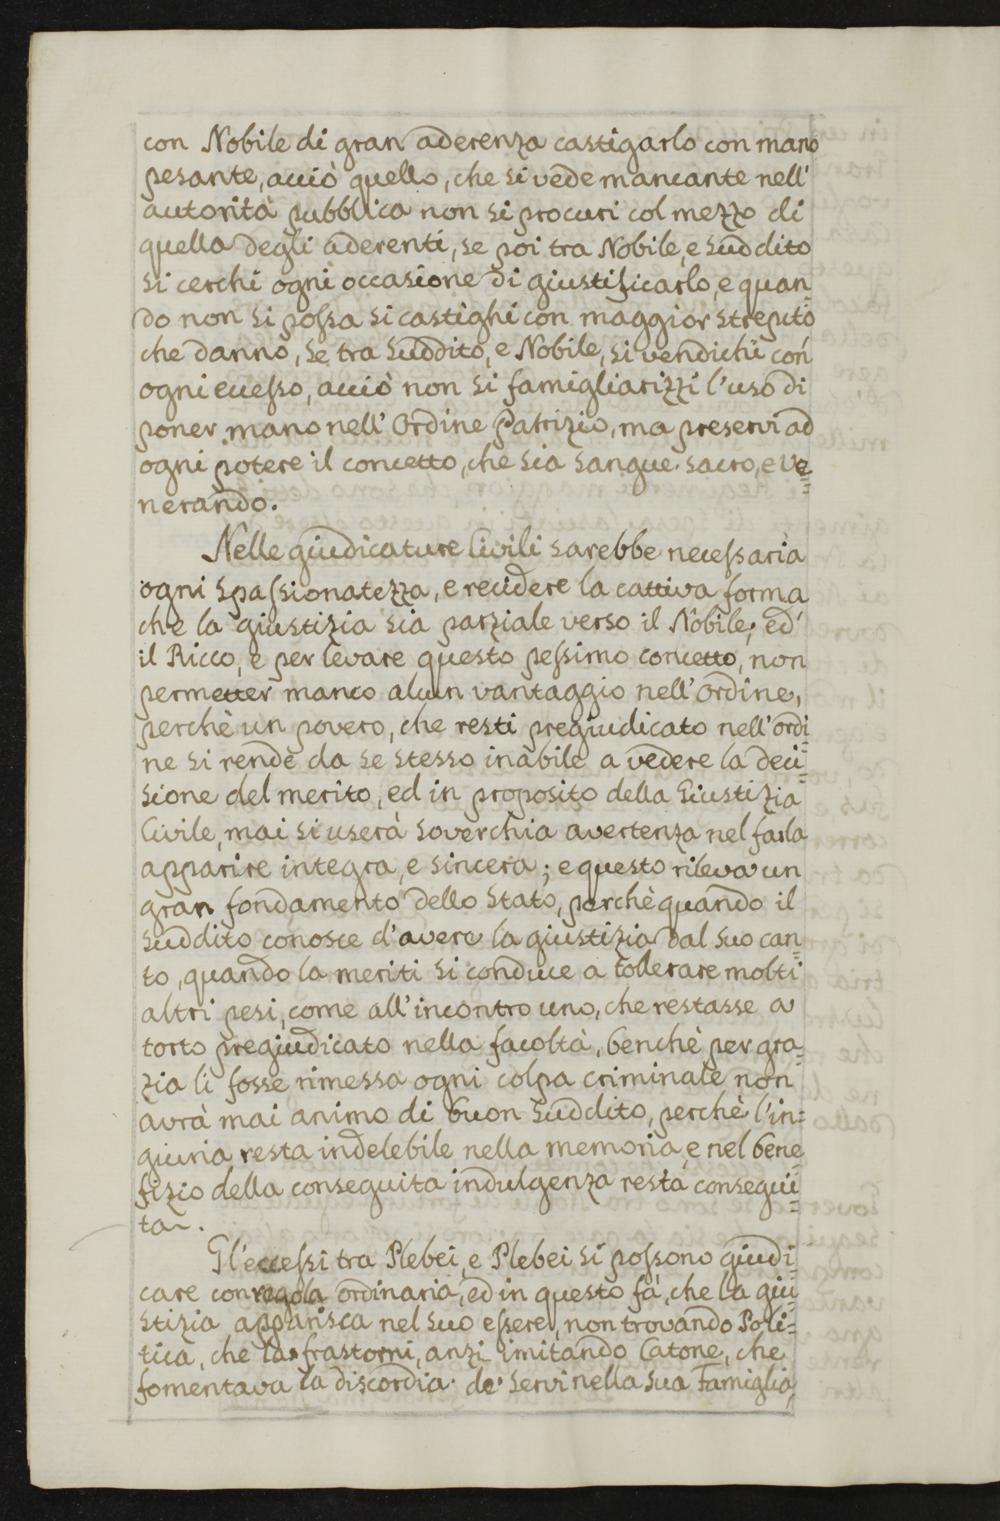 con Nobile di gran aderenza castigarlo con mano
pesante, acciò quello, che si vede mancante nell'
autorità pubblica non si procuri col mezzo di
quella degli aderenti, se poi tra Nobile, e Suddito
si cerchi ogni occasione di giustificarlo, e quan=
do non si possa si castighi con maggior strepito
che danno, se tra Suddito, e Nobile, si vendichi con
ogni eccesso, acciò non si famigliarizzi l'uso di
poner mano nell'Ordine Patrizio, ma preservi ad
ogni potere il concetto, che sia sangue sacro, e ve=
nerando.
Nelle giudicature Civili sarebbe necessaria
ogni spassionatezza, e recidere la cattiva forma
che la giustizia sia parziale verso il Nobile, ed
il Ricco, e per levare questo pessimo concetto, non
permetter manco alcun vantaggio nell'ordine,
perchè un povero, che resti pregiudicato nell'ordi=
ne si rende da se stesso inabile a vedere la deci=
sione del merito, ed in proposito della Giustizia
Civile, mai si userà soverchia avertenza nel farla
apparire integra, e sincera; e questo rileva un
gran fondamento dello Stato, perchè quando il
Suddito conosce d'avere la giustizia dal suo can=
to, quando la meriti si conduce a tollerare molti
altri pesi, come all'incontro uno, che restasse a
torto pregiudicato nella facoltà, benchè per gra=
zia li fosse rimessa ogni colpa criminale non
avrà mai animo di buon Suddito, perchè l'in=
giuria resta indelebile nella memoria, e nel bene=
fizio della conseguita indulgenza resta consegui=
ta.
Gl'eccessi tra Plebei, e Plebei si possono giudi=
care con regola ordinaria, ed in questo fà, che la giu=
stizia apparisca nel suo essere, non trovando Poli=
tica, che la frastorni, anzi imitando Catone, che
fomentava la discordia de' servi nella sua Famiglia,